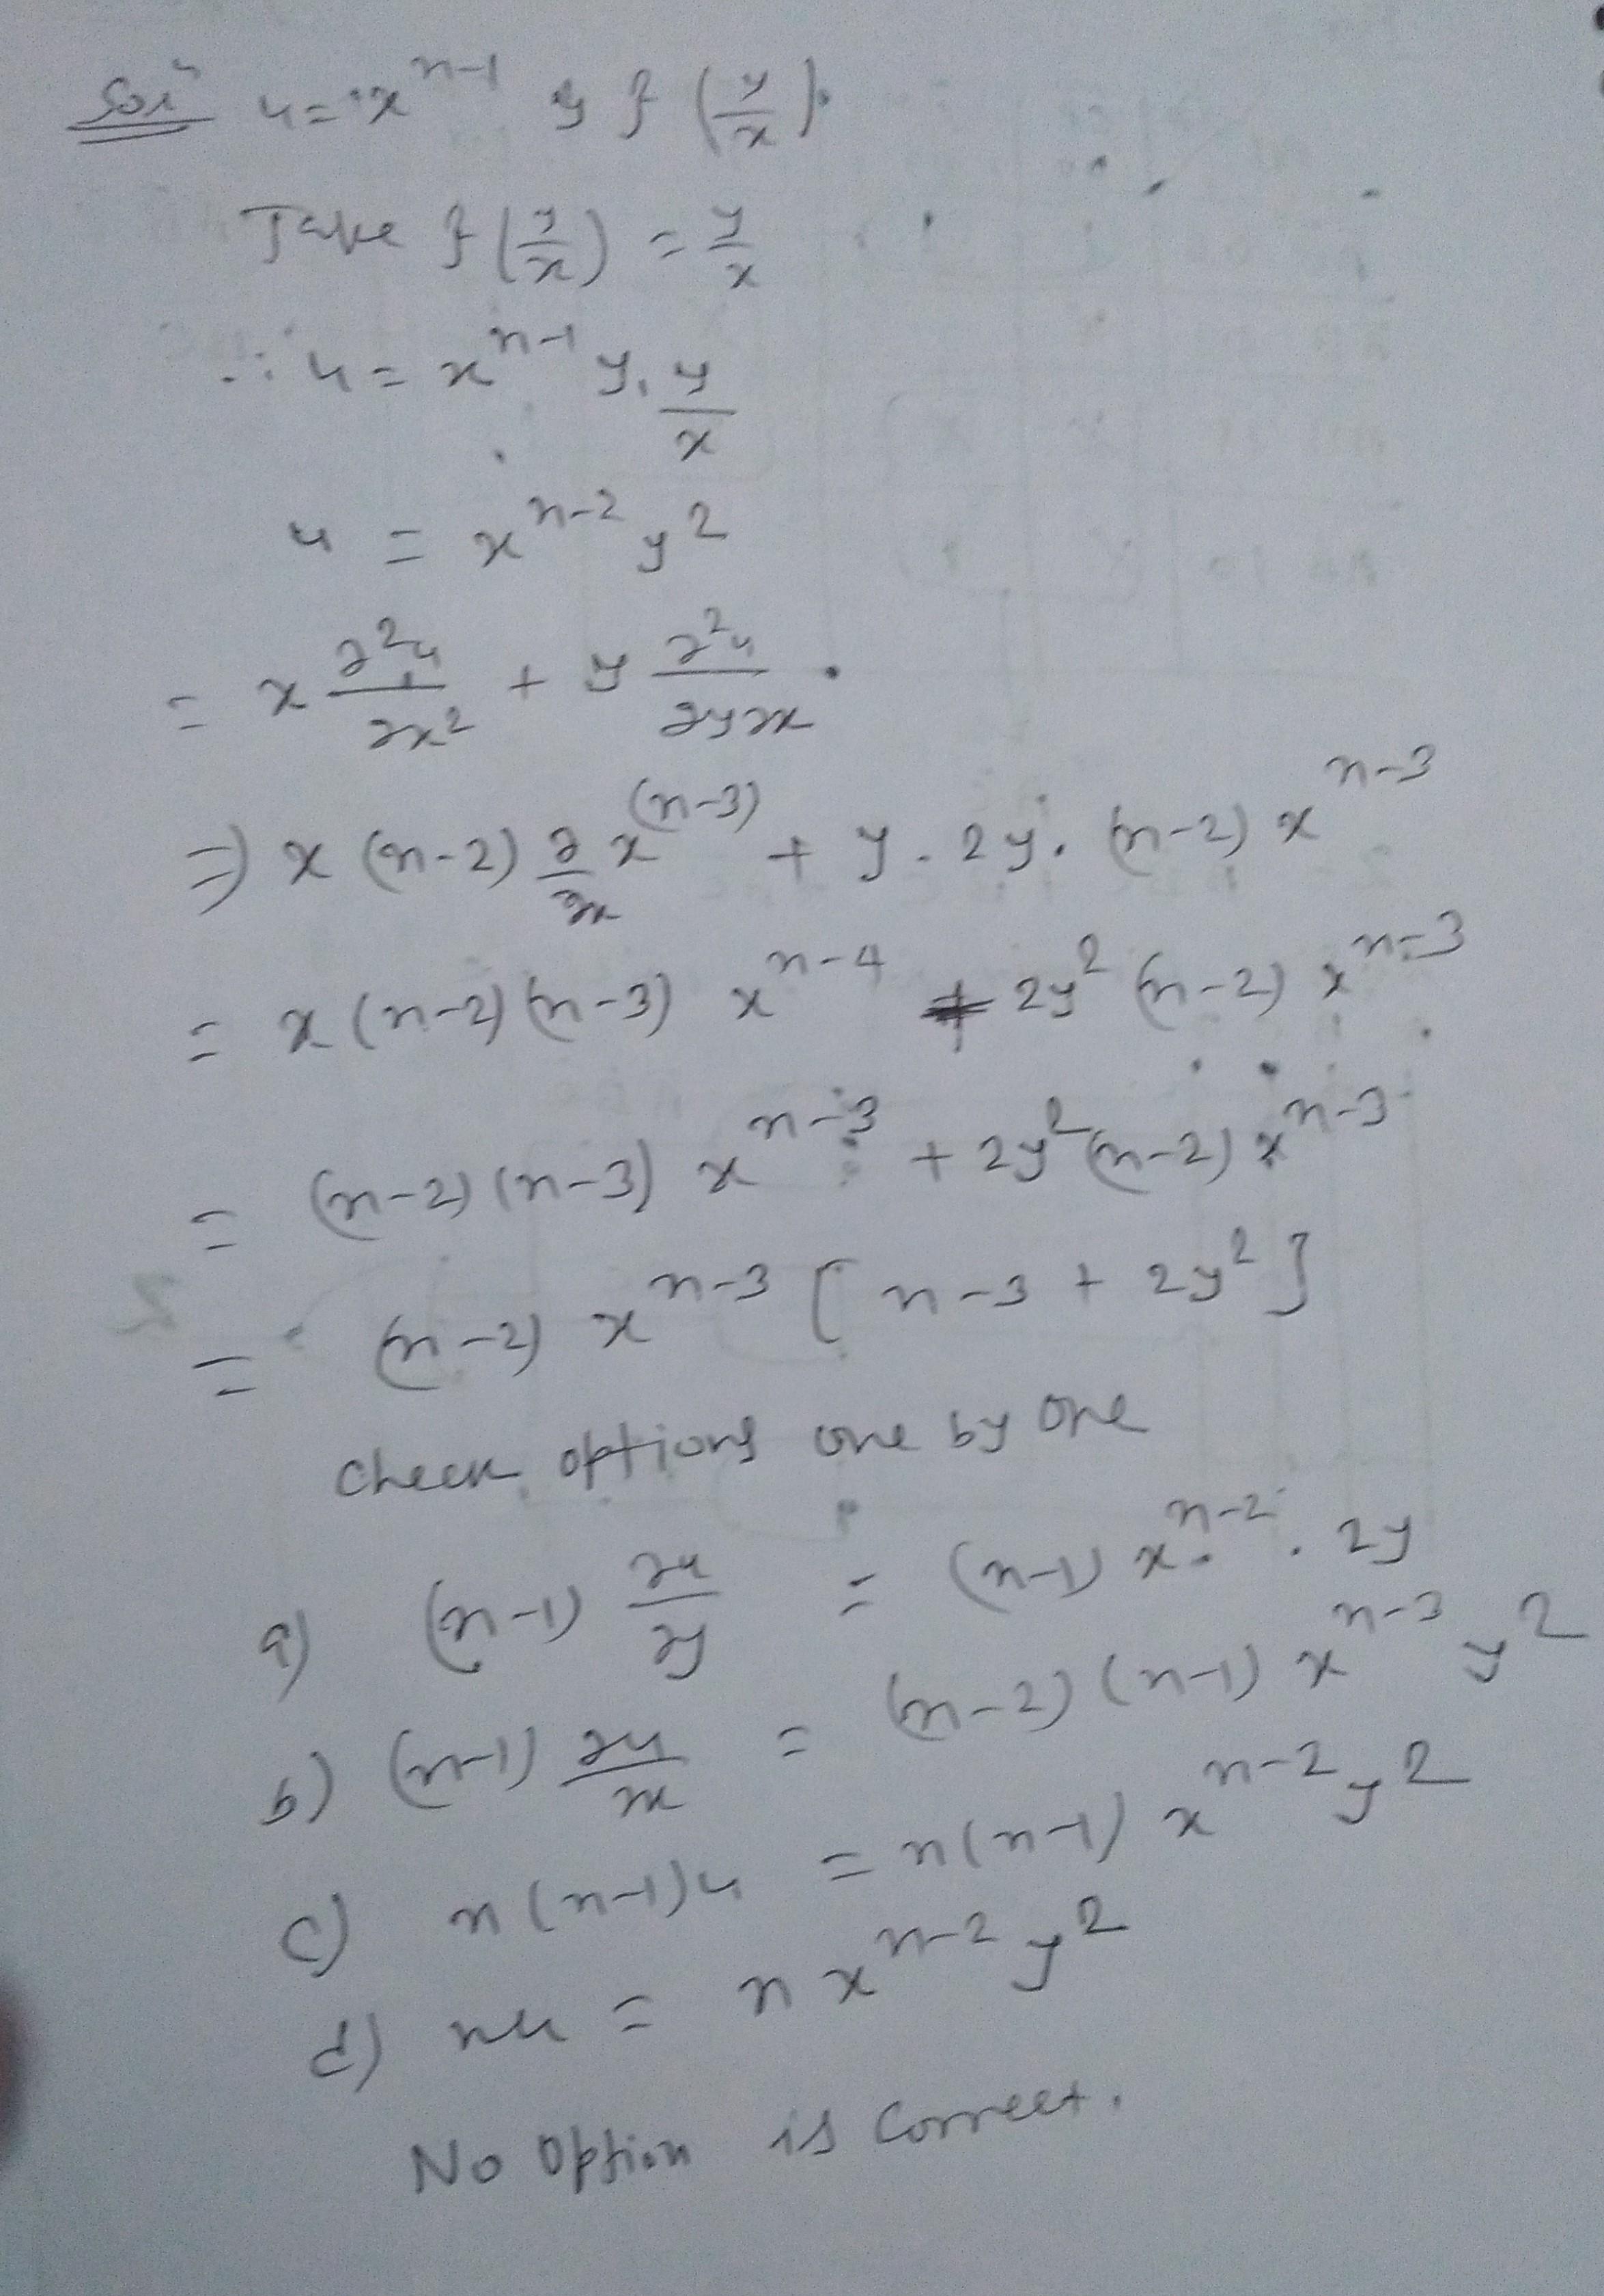 Solⁿ u = x^{n-1} y f (y/x).
Take f (y/x) = y/x
∴ u = x^{n-1} y. y/x
u = x^{n-2} y^2
= x ∂²u/∂x² + y ∂²u/∂y∂x.
⇒ x (n-2) ∂/∂x x^{(n-3)} + y. 2y. (n-2) x^{n-3}
= x (n-2) (n-3) x^{n-4} + 2y² (n-2) x^{n-3}
= (n-2) (n-3) x^{n-3} + 2y² (n-2) x^{n-3}
= (n-2) x^{n-3} [n-3 + 2y²]
Check options one by one
a) (n-1) ∂u/∂y = (n-1) x^{n-2}. 2y
b) (n-1) ∂u/∂x = (n-2) (n-1) x^{n-3} y²
c) n(n-1)u = n(n-1) x^{n-2} y²
d) nu = n x^{n-2} y²
No Option is Correct.